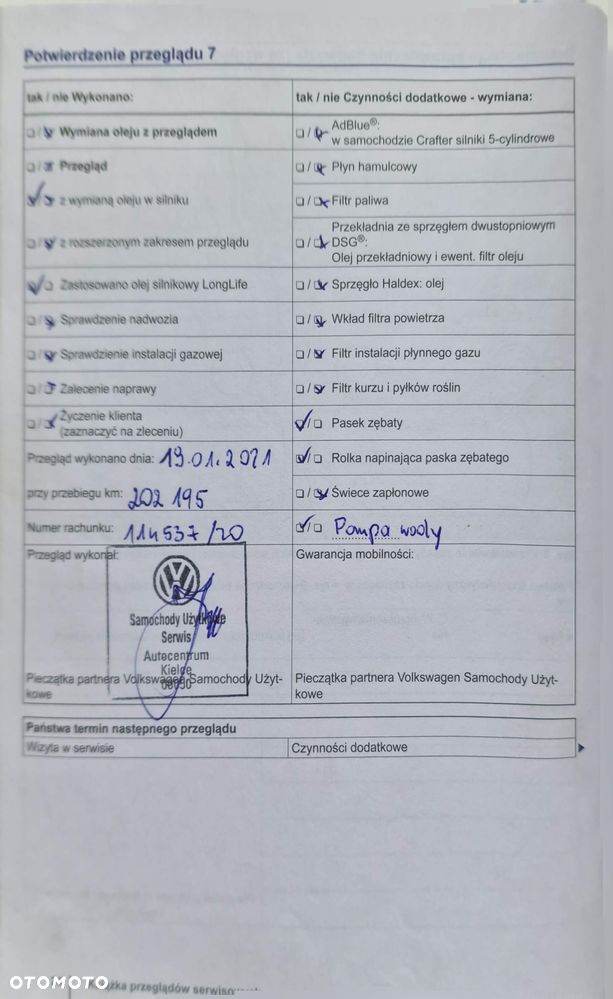 Potwierdzenie przeglądu 7
tak / nie Wykonano:
Wymiana oleju z przeglądem
Przegląd
z wymianą oleju w silniku
z rozszerzonym zakresem przeglądu
Zastosowano olej silnikowy LongLife
Sprawdzenie nadwozia
Sprawdzienie instalacji gazowej
Zalecenie naprawy
Życzenie klienta
(zaznaczyć na zleceniu)
Przegląd wykonano dnia: 19.01.2021
przy przebiegu km: 202 195
Numer rachunku: 114537/20
Przegląd wykonał:
Samochody Użytkowe
Serwis
Autocentrum
Kielce
Pieczątka partnera Volkswagen Samochody Użyt-
kowe
tak / nie Czynności dodatkowe - wymiana:
AdBlue®:
w samochodzie Crafter silniki 5-cylindrowe
Płyn hamulcowy
Filtr paliwa
Przekładnia ze sprzęgłem dwustopniowym
DSG®:
Olej przekładniowy i ewent. filtr oleju
Sprzęgło Haldex: olej
Wkład filtra powietrza
Filtr instalacji płynnego gazu
Filtr kurzu i pyłków roślin
Pasek zębaty
Rolka napinająca paska zębatego
Świece zapłonowe
Pompa wody
Gwarancja mobilności:
Pieczątka partnera Volkswagen Samochody Użyt-
kowe
Państwa termin następnego przeglądu
Wizyta w serwisie
Czynności dodatkowe
OTOMOTO
Książka przeglądów